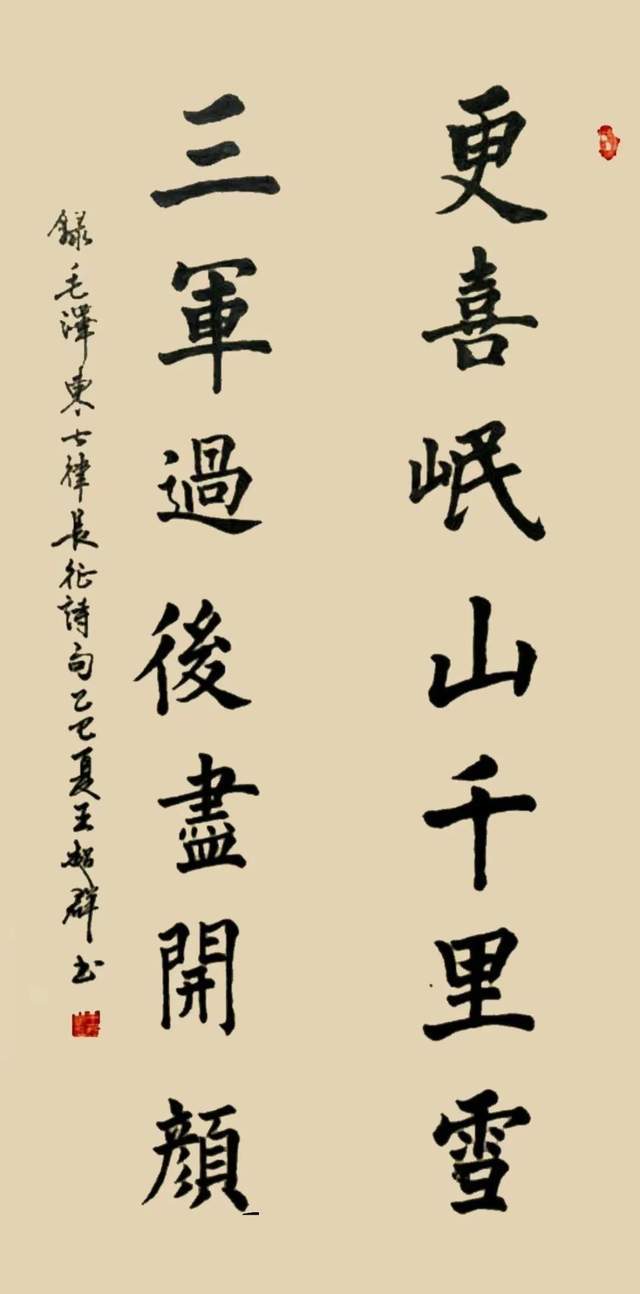 更喜岷山千里雪
三軍過後盡開顔
録毛澤東七律長征詩句乙巳夏王超群书